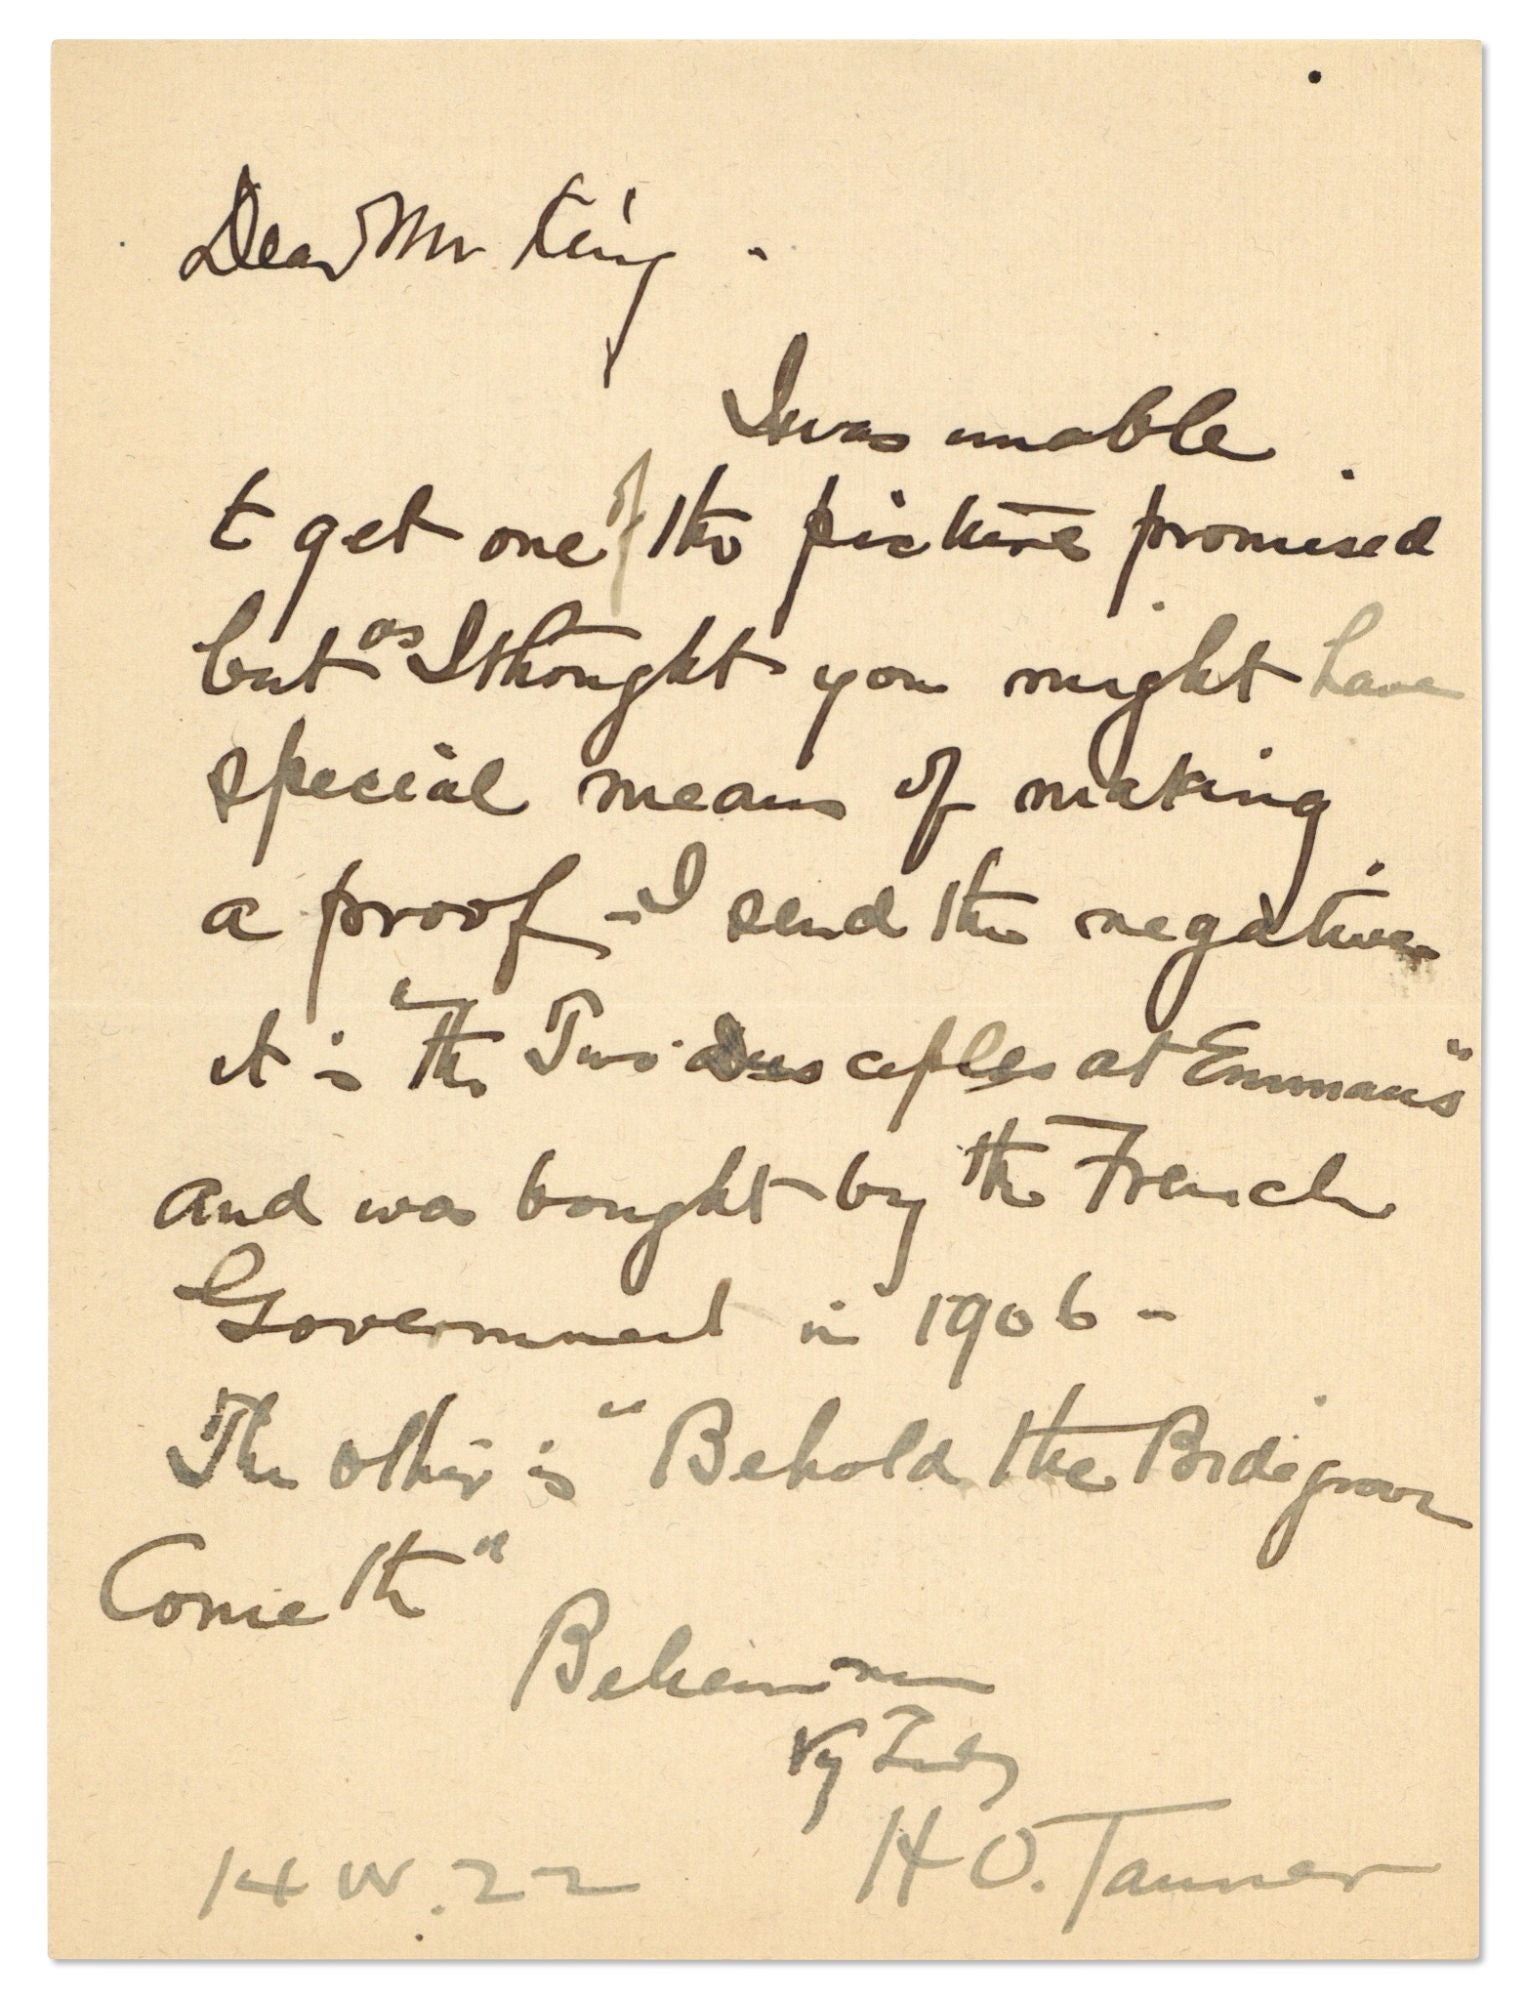 Dear Mr King.
I was unable
t get one of the picture promised
but as I thought you might have
special means of making
a proof - I send the negative
it is "the Two Disciples at Emmaus"
and was bought by the French
Government in 1906 -
The other is "Behold the Bridegroom
Cometh"
Believe me
Vy Truly
H O. Tanner
W. 22